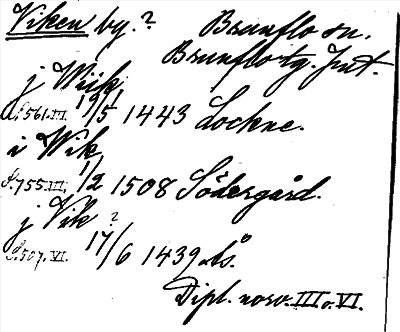 Viken by.? Brunflo sn.
Brunflo tg. Jmt.
j Wiik
S. 561. III. 19/5 1443 Lockne.
i Wik
S. 755. III. 1/2 1508 Södergård.
j Vik ?
S. 507. VI. 17/6 1439 Ås.
Dipl. norv. III o. VI.